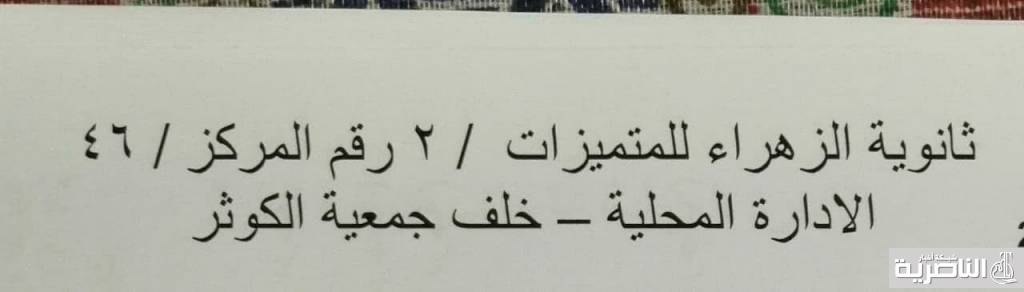 ثانوية الزهراء للمتميزات / ٢ رقم المركز / ٤٦
الادارة المحلية – خلف جمعية الكوثر
شبكة أخبار
الناصرية